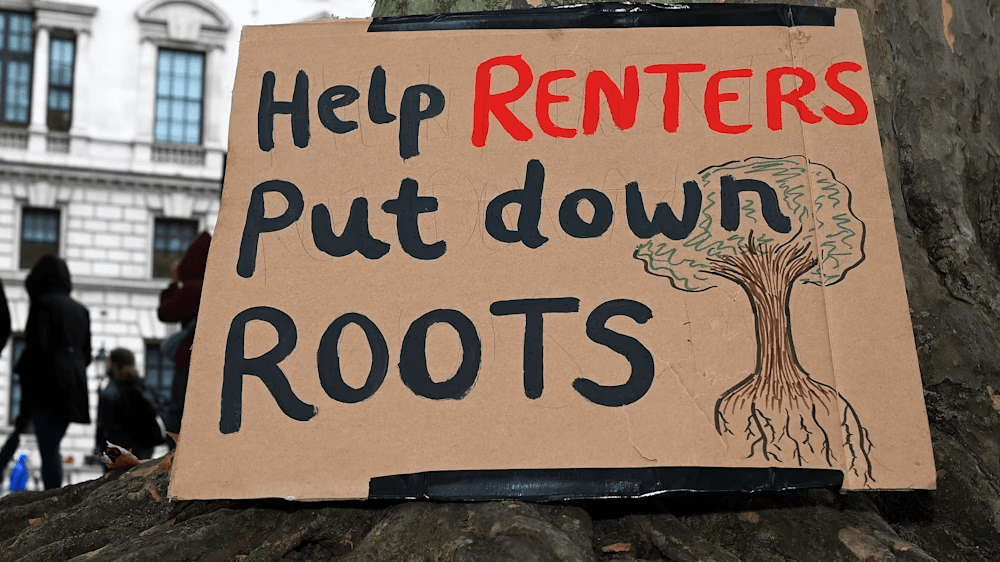 Help RENTERS
Put down
ROOTS